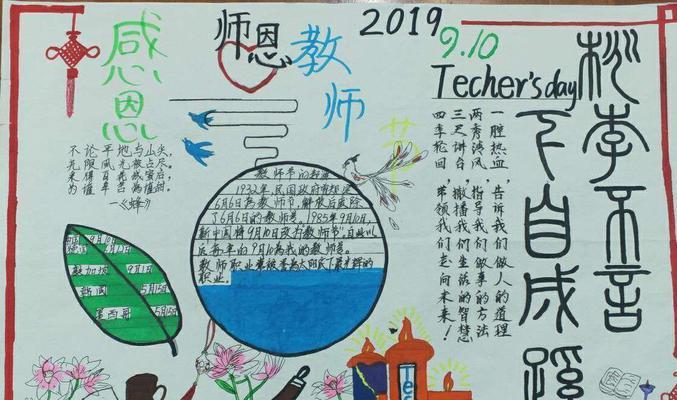 感恩
师恩
教师
节
2019
9.10
Techer's day
桃李不言
下自成蹊
不论平地与山尖，
无限风光被占尽。
采得百花成蜜后，
为谁辛苦为谁甜。
—《蜂》
教师节的起源
1932年，民国政府曾规定
6月6日为教师节，解放后废除
了6月6日的教师节，1985年9月10日，
新中国将9月10日改为教师节，自此以
后每年的9月10为我的教师节。
教师职业曾被誉为太阳底下最光辉的
职业。
一腔热血，告诉我们做人的道理
两秀清风，指导我们做事的方法
三尺讲台，撒播我们生活的智慧
四季轮回，带领我们走向未来！
9月10日
新加坡 9月1日
韩国 5月15日
墨西哥 5月15日
Tea